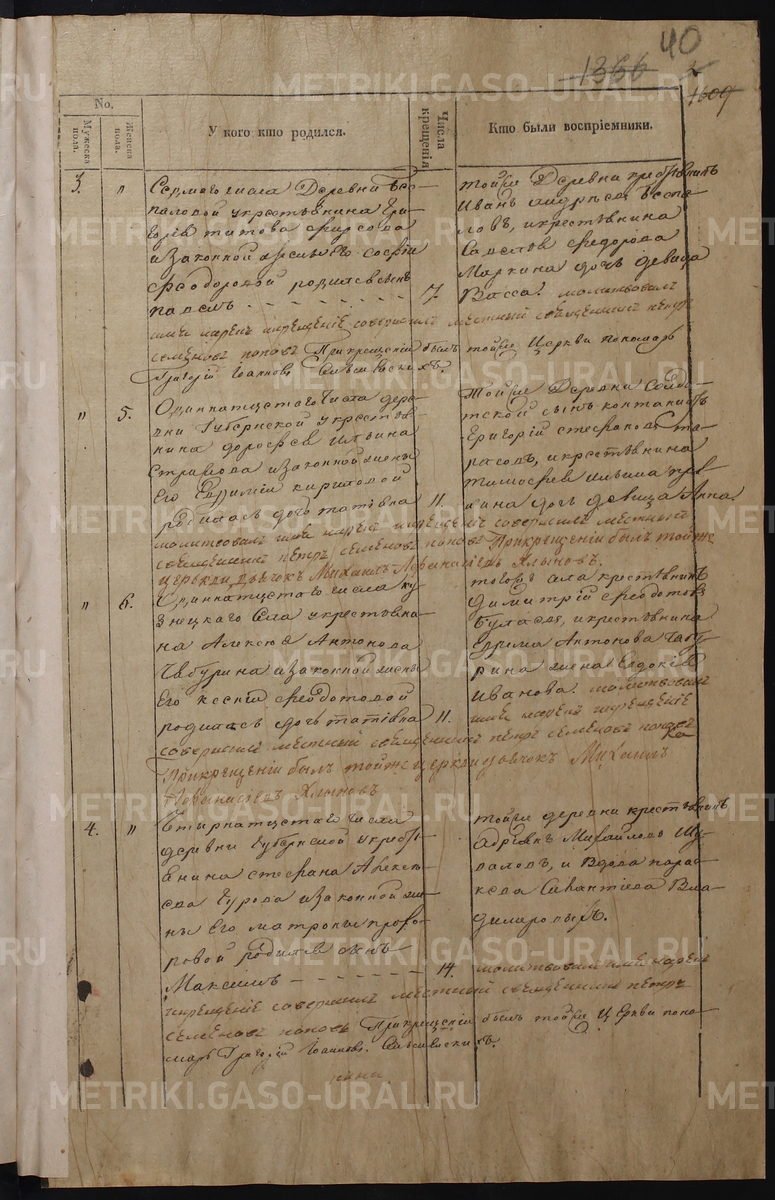 40
1366
1609
No.
Мужеска пола.
Женска пола.
У кого кто родился.
Числа крещенія
Кто были воспріемники.
3. "
Седмаго числа Деревни Бес-
паловой у крестьянина Гри-
горья Титова
и законной жены его Софіи
Феодоровой родился сынъ
Павелъ
7.
тойже Деревни
Иванъ Андреевъ Беспа-
ловъ, и крестьянина
Савелья Федорова
Маркина дочь девица
Васса. молитвовалъ
имя нареч. и крещеніе совершилъ местный священникъ Петръ
Семеновъ Поповъ При крещеніи былъ тойже Церкви пономарь
Григорій Іоанновъ
" 5.
Одиннатцетаго числа дере-
вни Губернской у крестья-
нина Дорофея Ильина
и законной жены
его Евфиміи Кириловой
родилась дочь Татіяна
11.
тойже Деревни
сынъ
Григорій Стефановъ Та-
расовъ, и крестьянина
Тимофея Ильина
дочь девица Анна
молитвовалъ имя нарекъ и крещеніе совершилъ местный
священникъ Петръ Семеновъ Поповъ При крещеніи былъ тойже
церкви дьячокъ Михаилъ Афанасьевъ Хлыновъ.
" 6.
Одиннатцетаго числа Ку-
знецкаго Села у крестьяни-
на Алексея Антонова
Чабурина и законной жены
его Ксеніи Феодотовой
родилась дочь Татіяна
11.
тогожъ села крестьянинъ
Димитрій Феодотовъ
и крестьянина
Ефима Антонова Чабу-
рина жена Евдокия
Иванова. молитвовалъ
имя нарекъ и крещеніе
совершилъ местный священникъ Петръ Семеновъ Поповъ
При крещеніи былъ тойже церкви дьячокъ Михаилъ
Афанасьевъ Хлыновъ
4. "
Четырнатцетаго числа
деревни Губернской у крест-
янина Стефана Алексе-
ева Турова и законной же-
ны его Матроны Прохо-
ровой родился сынъ
Максимъ
14.
тойже деревни крестьянинъ
Адріянъ Михайловъ Шу-
валовъ, и вдова Парас-
кева Савантіева Вла-
димировыхъ.
молитвовалъ имя нарекъ
и крещеніе совершилъ местный священникъ Петръ
Семеновъ Поповъ При крещеніи былъ тойже Церкви поно-
марь Григорій Іоанновъ
METRIKI.GASO-URAL.RU